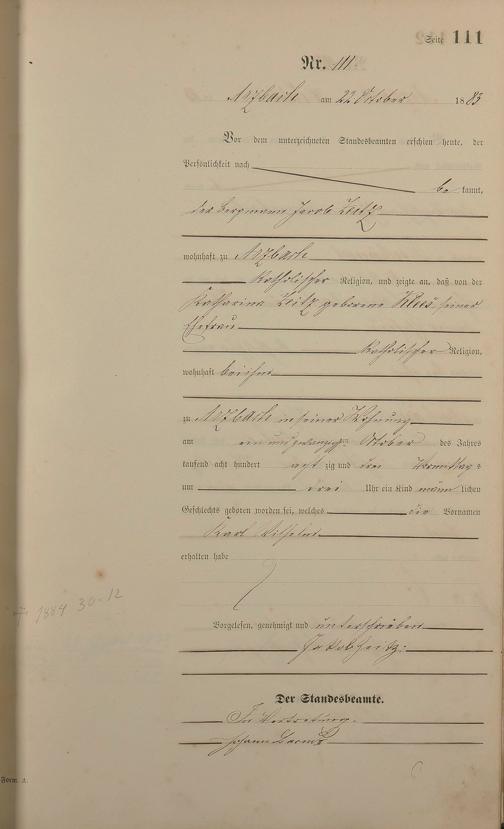 Seite 111
Nr. 111
Arzbach am 22 October 1883
Vor dem unterzeichneten Standesbeamten erschien heute, der
Persönlichkeit nach
be kannt,
der Bergmann Jacob Zeitz
wohnhaft zu Arzbach
katholischer Religion, und zeigte an, daß von der
Katharina Zeitz geborene Klees seiner
Ehefrau
katholischer Religion,
wohnhaft bei ihm
zu Arzbach in seiner Wohnung
am ein und zwanzigsten October des Jahres
tausend acht hundert acht zig und drei Vormittags
um drei Uhr ein Kind männ lichen
Geschlechts geboren worden sei, welches die Vornamen
Karl Wilhelm
erhalten habe
1884 30-12
Vorgelesen, genehmigt und unterschrieben
Jakob Zeitz
Der Standesbeamte.
In Vertretung.
Johann
Form. A.